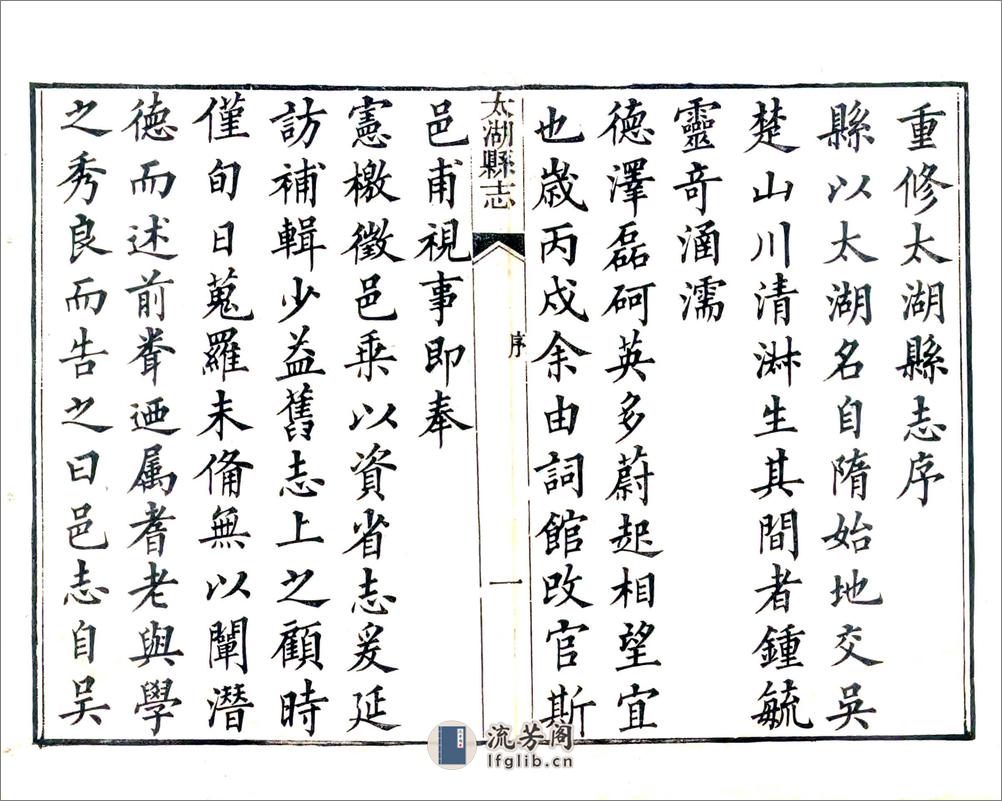 重修太湖縣志序
縣以太湖名自隋始地交吳
楚山川清淋生其間者鍾毓
靈竒涵濡
德澤磊砢英多蔚起相望宜
也歲丙戍余由詞館改官斯
太湖縣志
序
一
邑甫視事即奉
憲檄徵邑乗以資省志爰延
訪補輯少益舊志上之顧時
僅旬日蒐羅未備無以闡潛
德而述前軰迺属耆老與學
之秀良而告之曰邑志自吴
流芳阁
lfglib.cn